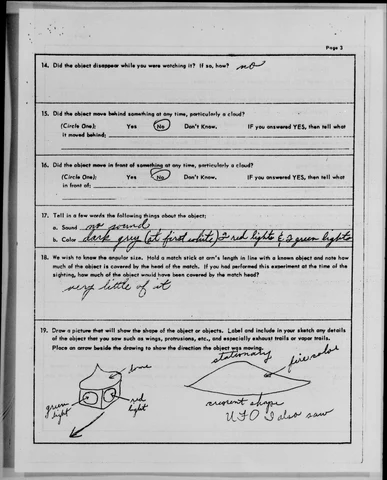 Page 3
14. Did the object disappear while you were watching it? If so, how? no
15. Did the object move behind something at any time, particularly a cloud?
(Circle One): Yes No Don't Know. IF you answered YES, then tell what
it moved behind:
16. Did the object move in front of something at any time, particularly a cloud?
(Circle One): Yes No Don't Know. IF you answered YES, then tell what
in front of:
17. Tell in a few words the following things about the object:
a. Sound no sound
b. Color dark grey (at first white) 2 red lights & 2 green lights
18. We wish to know the angular size. Hold a match stick at arm's length in line with a known object and note how
much of the object is covered by the head of the match. If you had performed this experiment at the time of the
sighting, how much of the object would have been covered by the match head?
very little of it
19. Draw a picture that will show the shape of the object or objects. Label and include in your sketch any details
of the object that you saw such as wings, protrusions, etc., and especially exhaust trails or vapor trails.
Place an arrow beside the drawing to show the direction the object was moving.
stationary
dome
green
light
red
light
cresent shape
UFO I also saw